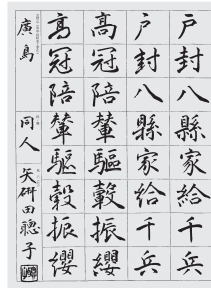 戸封八縣家給千兵
戸封八縣家給千兵
高冠陪輦驅轂振纓
高冠陪輦驅轂振纓
廣島
同人
矢研田聰子